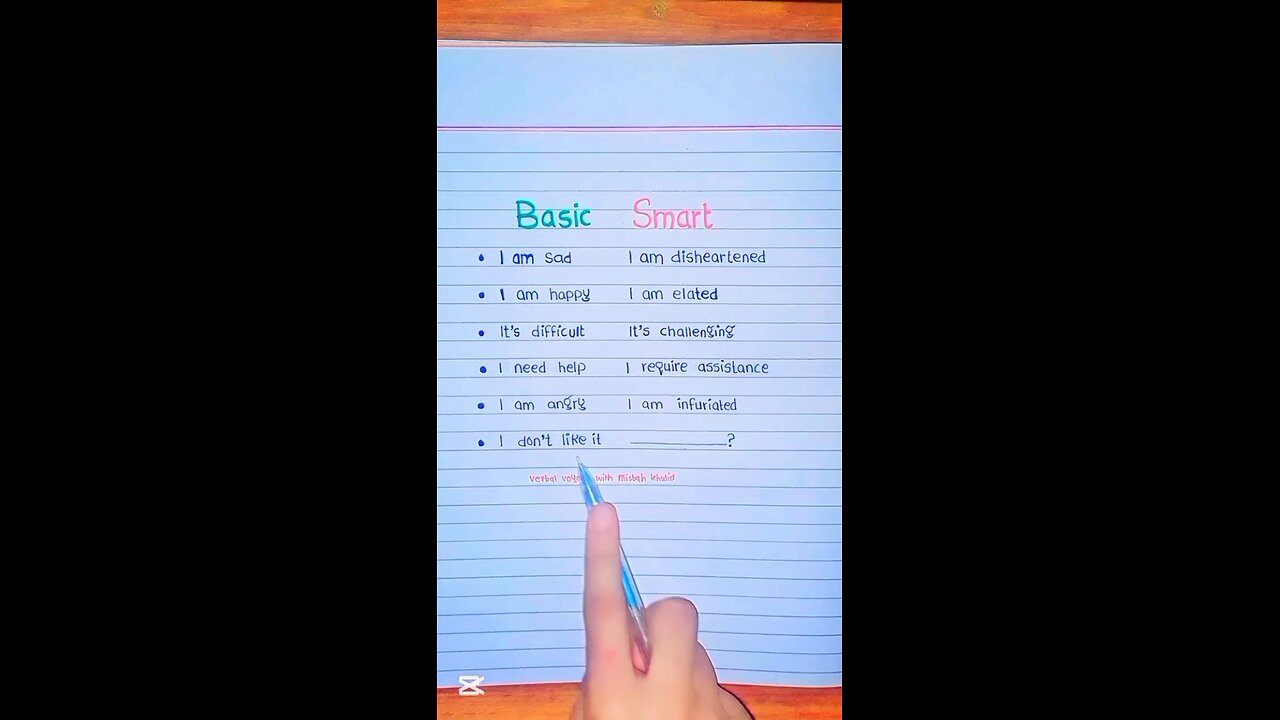 Basic Smart
• I am sad I am disheartened
• I am happy I am elated
• It's difficult It's challenging
• I need help I require assistance
• I am angry I am infuriated
• I don't like it ____________?
verbal with Misbah Khalid